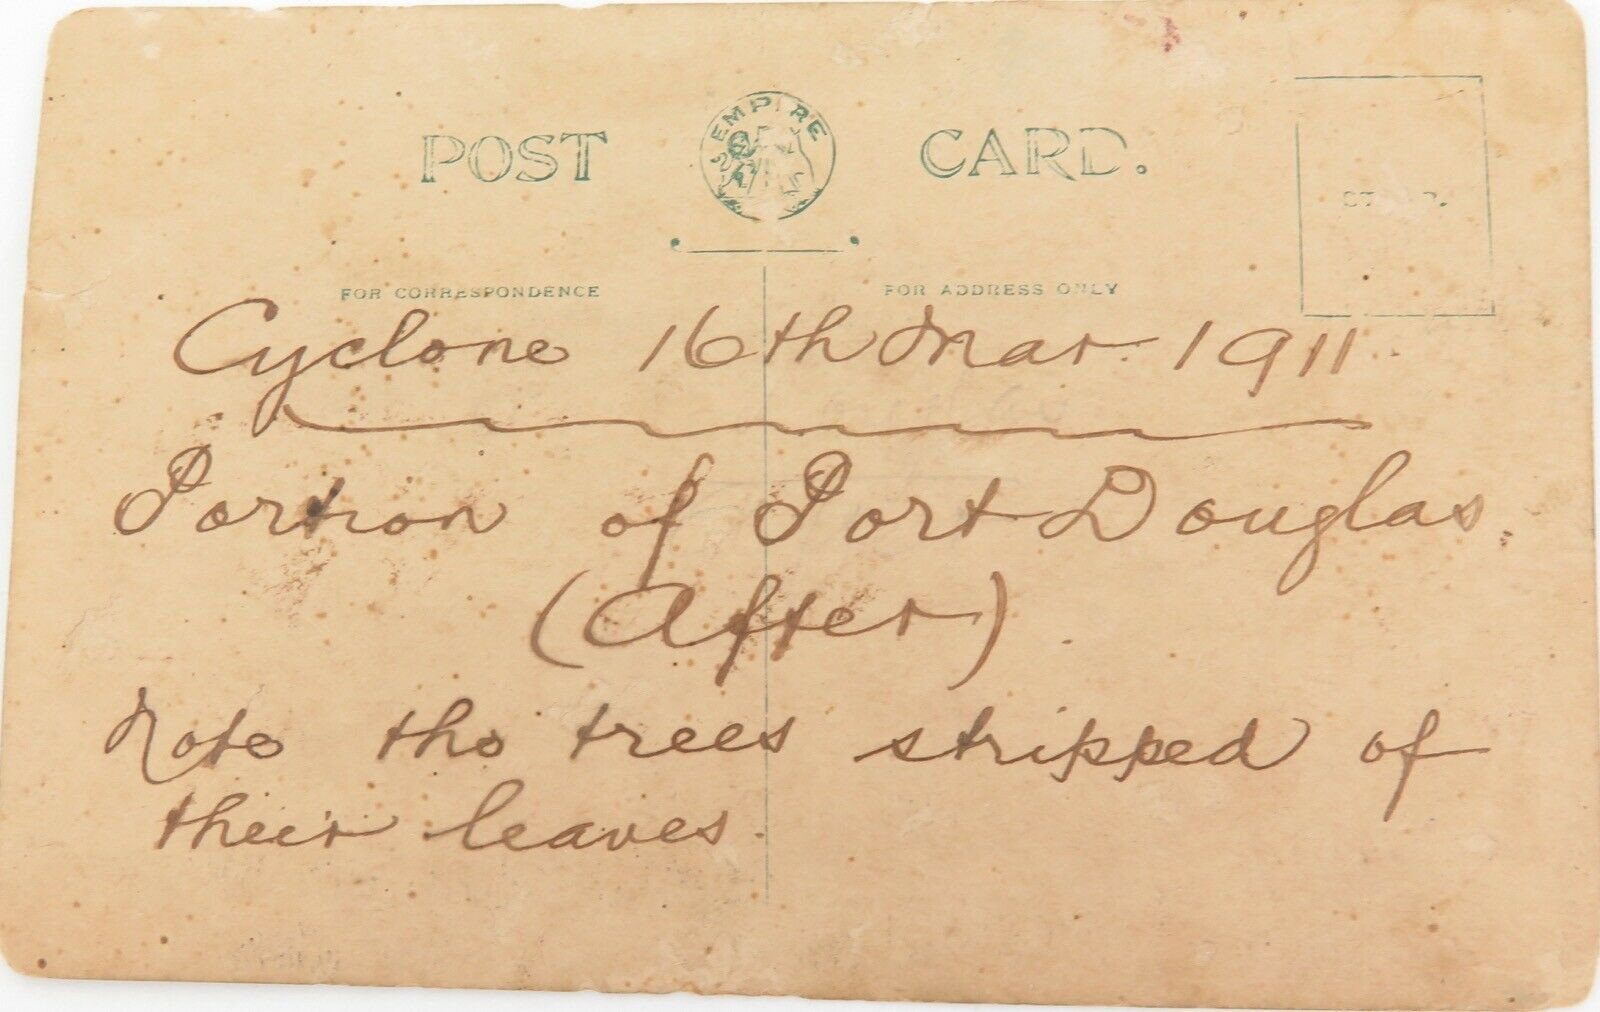 POST EMPIRE CARD.
STAMP.
FOR CORRESPONDENCE FOR ADDRESS ONLY
Cyclone 16th Mar. 1911.
Portion of Port Douglas.
(After).
Note the trees stripped of
their leaves.